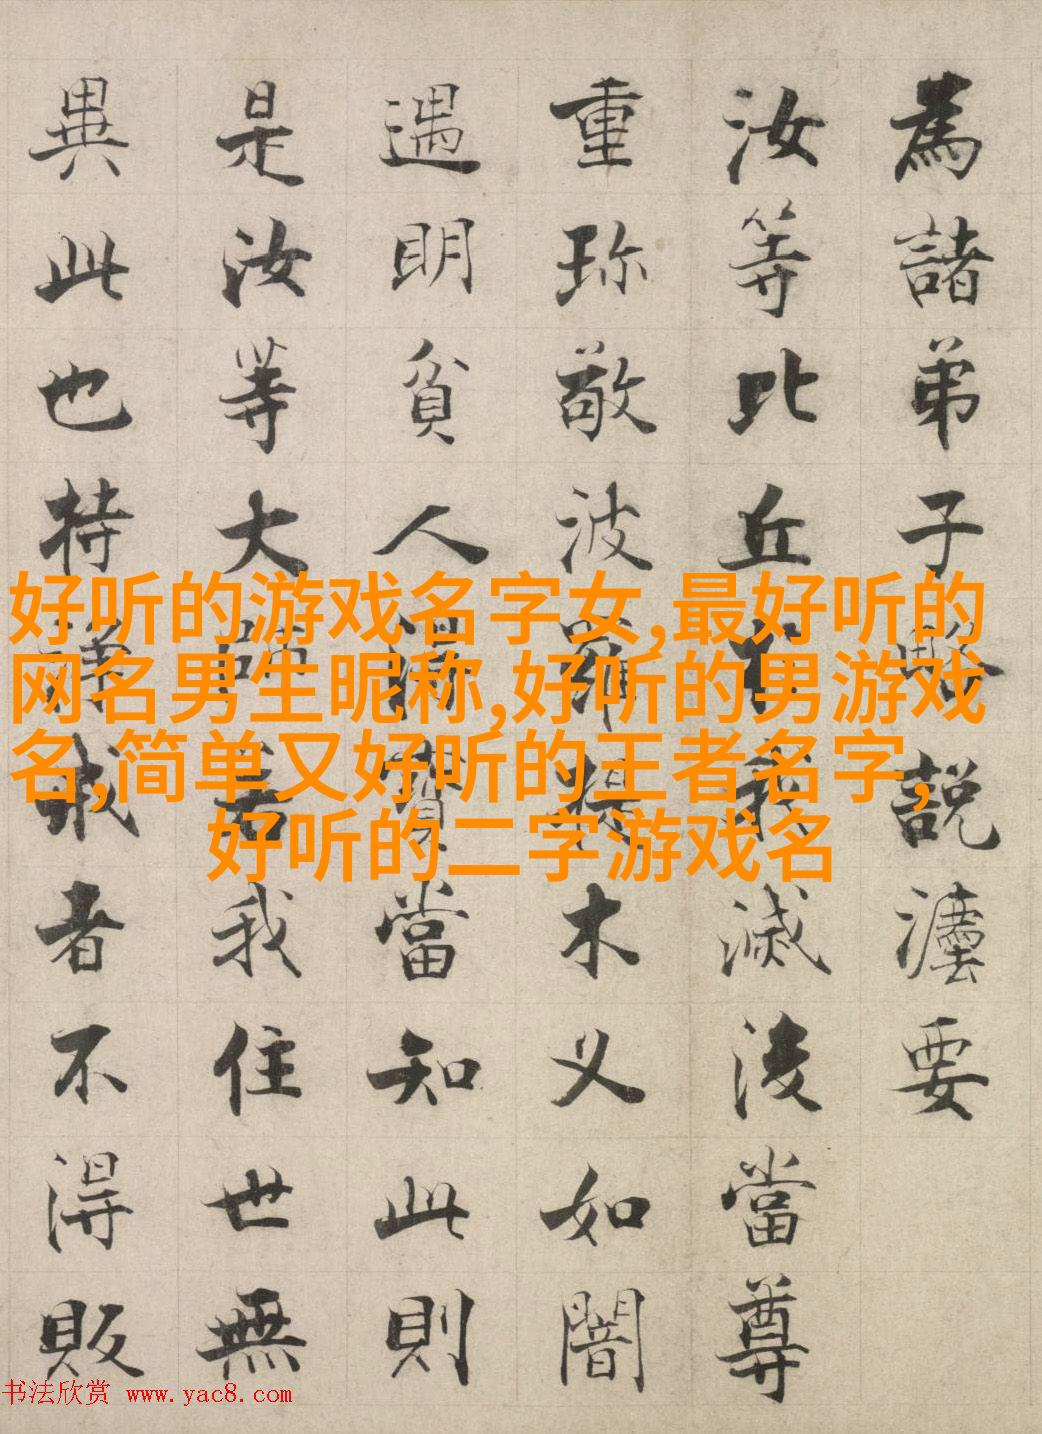 為諸弟子略說灋要
汝等比丘於我滅後當尊
重珎敬波羅提木叉如闇
遇明貧人得寶當知此則
是汝等大師若我住世無
異此也持淨戒者不得販
好听的游戏名字女,最好听的
网名男生昵称,好听的男游戏
名,简单又好听的王者名字,
好听的二字游戏名
书法欣赏 www.yac8.com